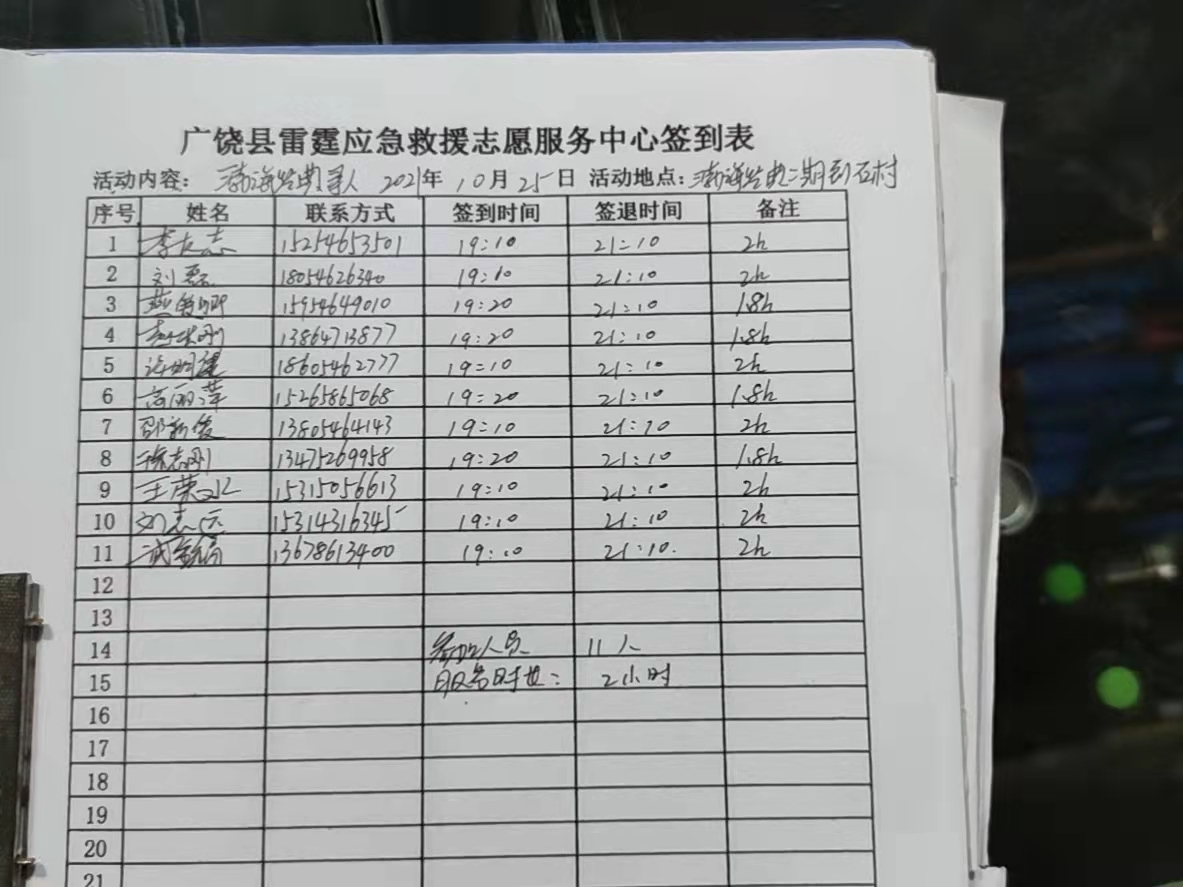 广饶县雷霆应急救援志愿服务中心签到表
活动内容：渤海经典寻人 2021年10月25日 活动地点：渤海经典二期到石村
序号 姓名 联系方式 签到时间 签退时间 备注
1 李大志 15254653501 19:10 21:10 2h
2 刘磊 18054626340 19:10 21:10 2h
3 15954649010 19:20 21:10 1.8h
4 13864713877 19:20 21:10 1.8h
5 18605462777 19:10 21:10 2h
6 高丽萍 15265865068 19:20 21:10 1.8h
7 邵新俊 13805464143 19:10 21:10 2h
8 志刚 13475269958 19:20 21:10 1.8h
9 王荣 15315056613 19:10 21:10 2h
10 刘志 15314316345 19:10 21:10 2h
11 13678613400 19:10 21:10. 2h
12
13
14 参加人员 11人
15 服务时长： 2小时
16
17
18
19
20
21